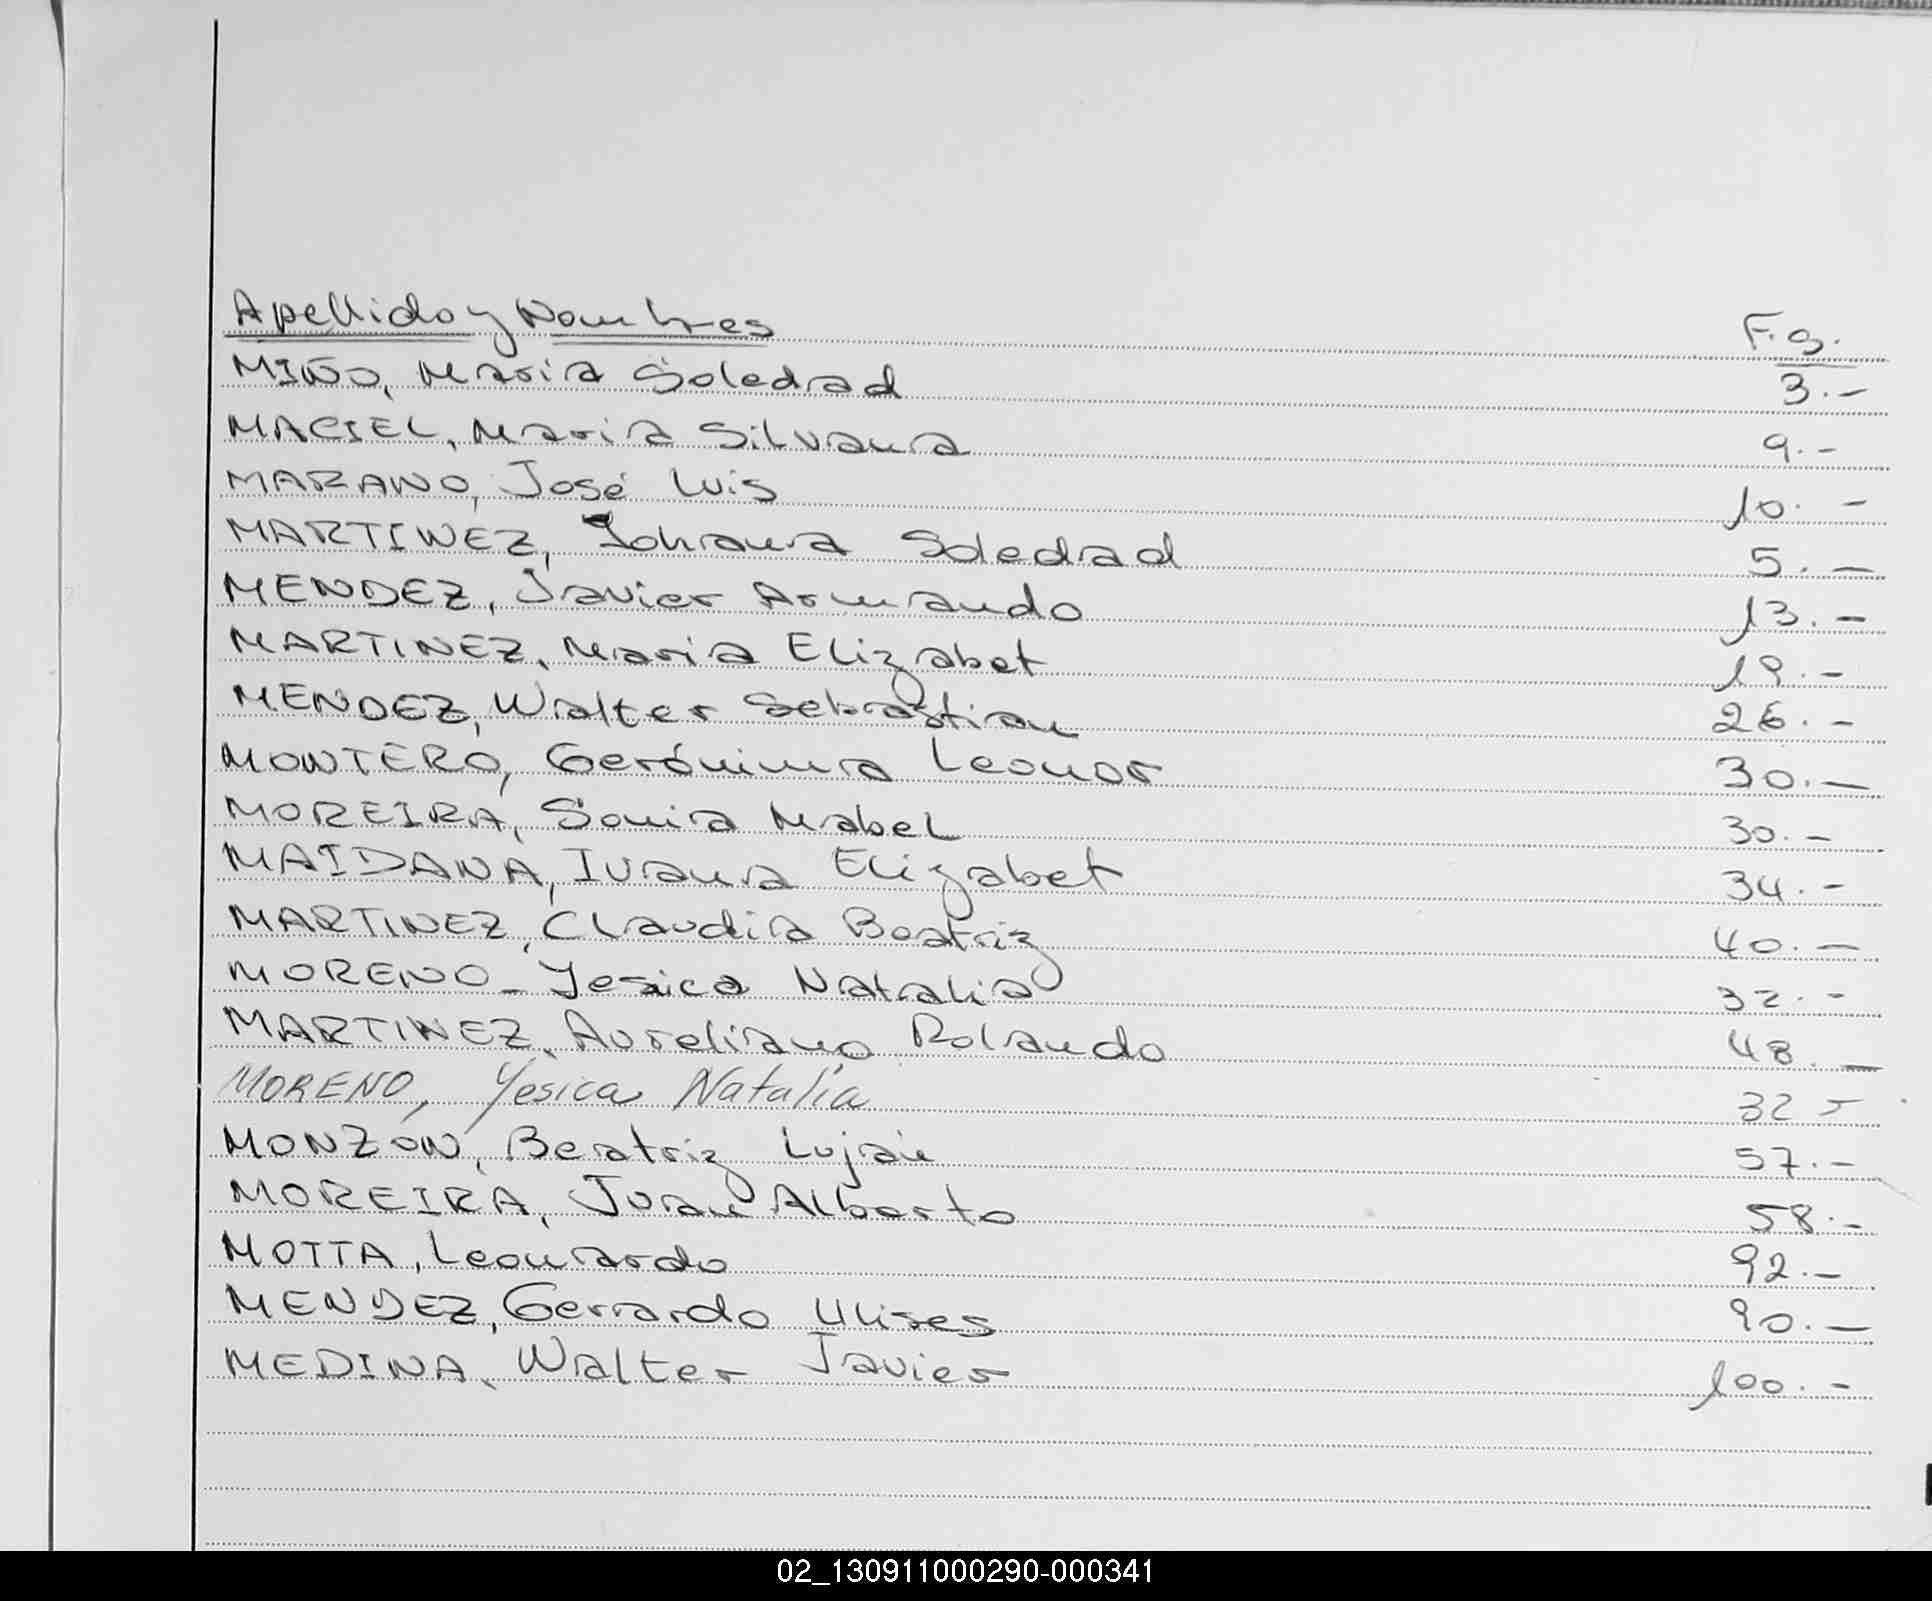 Apellido y Nombres F.g.
MIÑO, Maria Soledad 3.-
MACIEL, Maria Silvana 9.-
MARANO, José Luis 10.-
MARTINEZ, Johana Soledad 5.-
MENDEZ, Javier Armando 13.-
MARTINEZ, Maria Elizabet 19.-
MENDEZ, Walter Sebastian 26.-
MONTERO, Gerónima Leonor 30.-
MOREIRA, Sonia Mabel 30.-
MAIDANA, Ivana Elizabet 34.-
MARTINEZ, Claudia Beatriz 40.-
MORENO- Yesica Natalia 32.-
MARTINEZ, Aureliano Rolando 48.-
MORENO, Yesica Natalia 32-
MONZON, Beatriz Luján 57.-
MOREIRA, Juan Alberto 58.-
MOTTA, Leonardo 92.-
MENDEZ, Gerrardo Ulises 90.-
MEDINA, Walter Javier 100.-
02_130911000290-000341